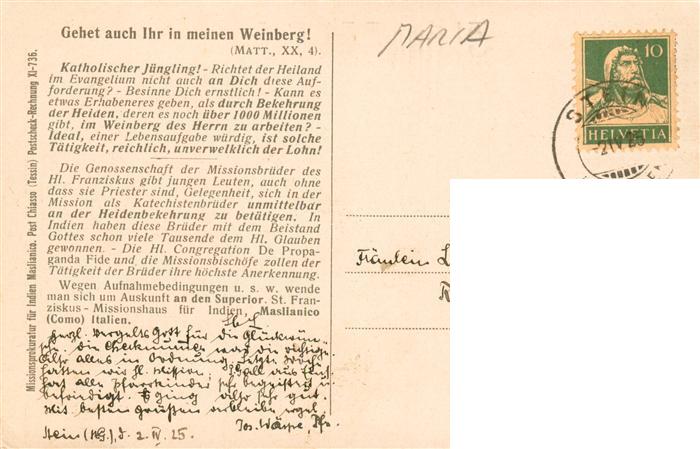 Gehet auch Ihr in meinen Weinberg!
(MATT., XX, 4).
Katholischer Jüngling! - Richtet der Heiland
im Evangelium nicht auch an Dich diese Auf-
forderung? - Besinne Dich ernstlich! - Kann es
etwas Erhabeneres geben, als durch Bekehrung
der Heiden, deren es noch über 1000 Millionen
gibt, im Weinberg des Herrn zu arbeiten? -
Ideal, einer Lebensaufgabe würdig, ist solche
Tätigkeit, reichlich, unverwelklich der Lohn!
Die Genossenschaft der Missionsbrüder des
Hl. Franziskus gibt jungen Leuten, auch ohne
dass sie Priester sind, Gelegenheit, sich in der
Mission als Katechistenbrüder unmittelbar
an der Heidenbekehrung zu betätigen. In
Indien haben diese Brüder mit dem Beistand
Gottes schon viele Tausende dem Hl. Glauben
gewonnen. - Die Hl. Congregation De Propa-
ganda Fide und die Missionsbischöfe zollen der
Tätigkeit der Brüder ihre höchste Anerkennung.
Wegen Aufnahmebedingungen u. s. w. wende
man sich um Auskunft an den Superior. St. Fran-
ziskus - Missionshaus für Indien, Maslianico
(Como) Italien.
herzl. Vergelts Gott für die Glückwün-
sche. Die war die richtige.
Also alles in Ordnung. Letzte Woche
hatten wir hl. Mission.
hat alle Pfarrkinder sehr begeistert u.
befriedigt. Es ging alles sehr gut.
Mit besten Grüssen verbleibe
Jos.
Stein (), d. 2. IV. 25.
Missionsprokuratur für Indien Maslianico. Post Chiasso (Tessin) Postscheck-Rechnung XI-736.
MARIA
10
HELVETIA
STEIN
-2IV25
Fräulein L